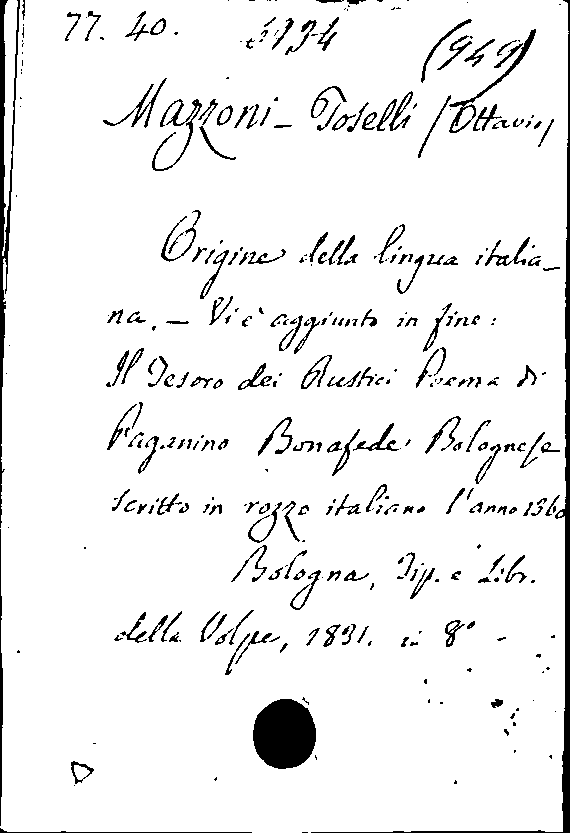 77. 40.
(949)
Mazzoni-Toselli (Ottavio)
Origine della lingua italia-
na. - Vi è aggiunto in fine:
Il Tesoro dei Rustici Poema di
Paganino Bonafede Bolognese
scritto in rozzo italiano l'anno 1360
Bologna, Tip. e Libr.
della Volpe, 1831. in 8°